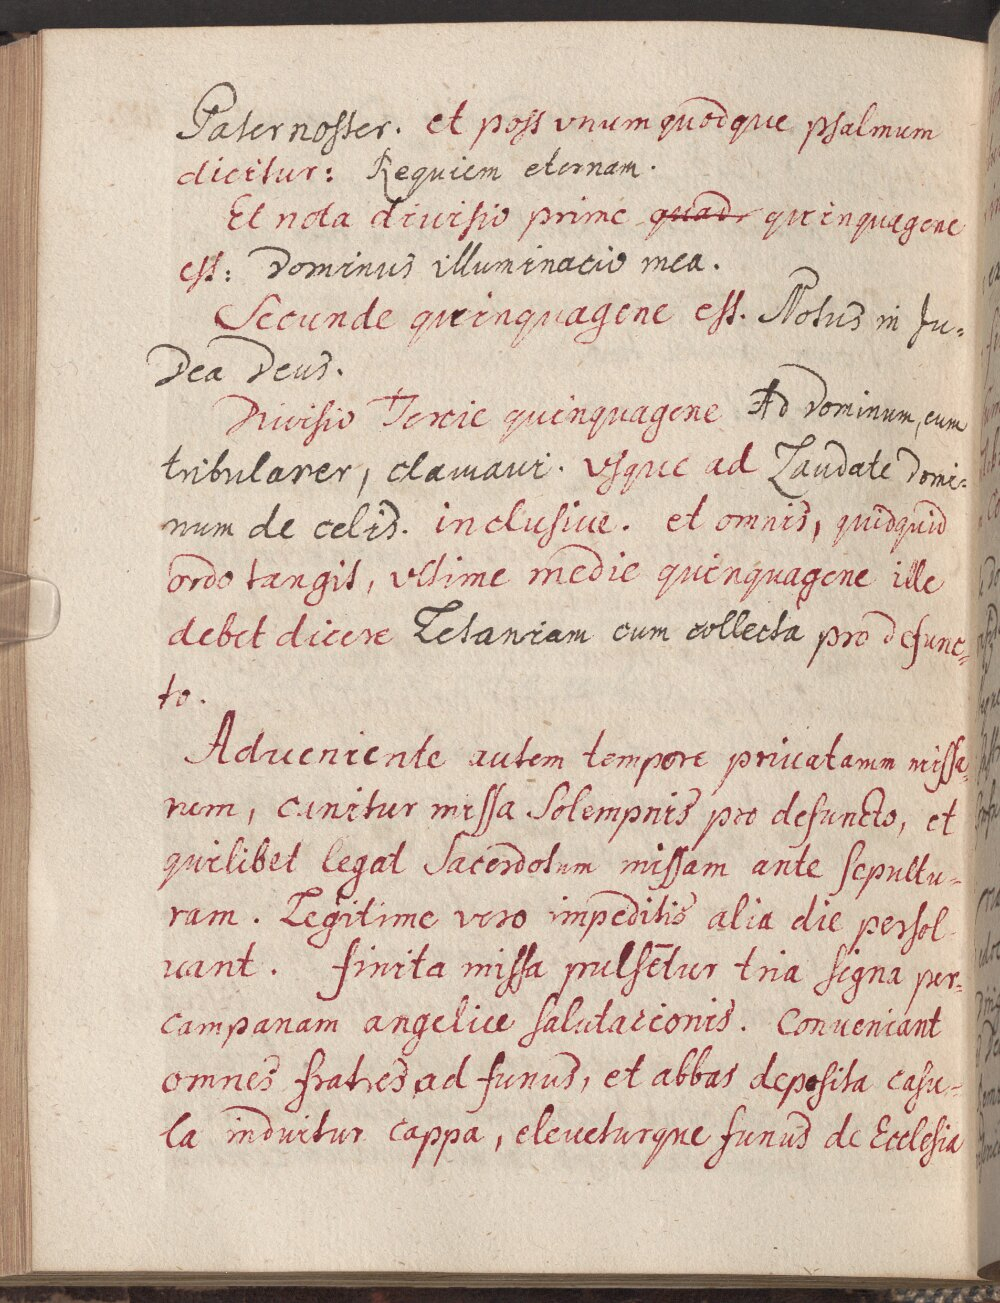 Paternoster. et post vnum quodque psalmum
dicitur: Requiem eternam.
Et nota divisio prime quad quinquagene
est: Dominus illuminacio mea.
Secunde quinquagene est. Notus in Ju-
dea Deus.
Divisio Tercie quinquagene Ad Dominum, cum
tribularer, clamaui. vsque ad Laudate Domi-
num de celis. inclusiue. et omnis, quidquid
ordo tangit, vltime medie quinquagene ille
debet dicere Letaniam cum collecta pro defunc-
to.
Adueniente autem tempore priuatamm missa-
rum, canitur missa Solempnis pro defuncto, et
quilibet legat Sacerdotum missam ante sepultu-
ram. Legitime vero impeditis alia die persol-
uant. finita missa pulsētur tria signa per-
campanam angelice salutacionis. Conueniant
omnes fratres ad funus, et abbas deposita casu-
la induitur cappa, eleueturque funus de Ecclesia